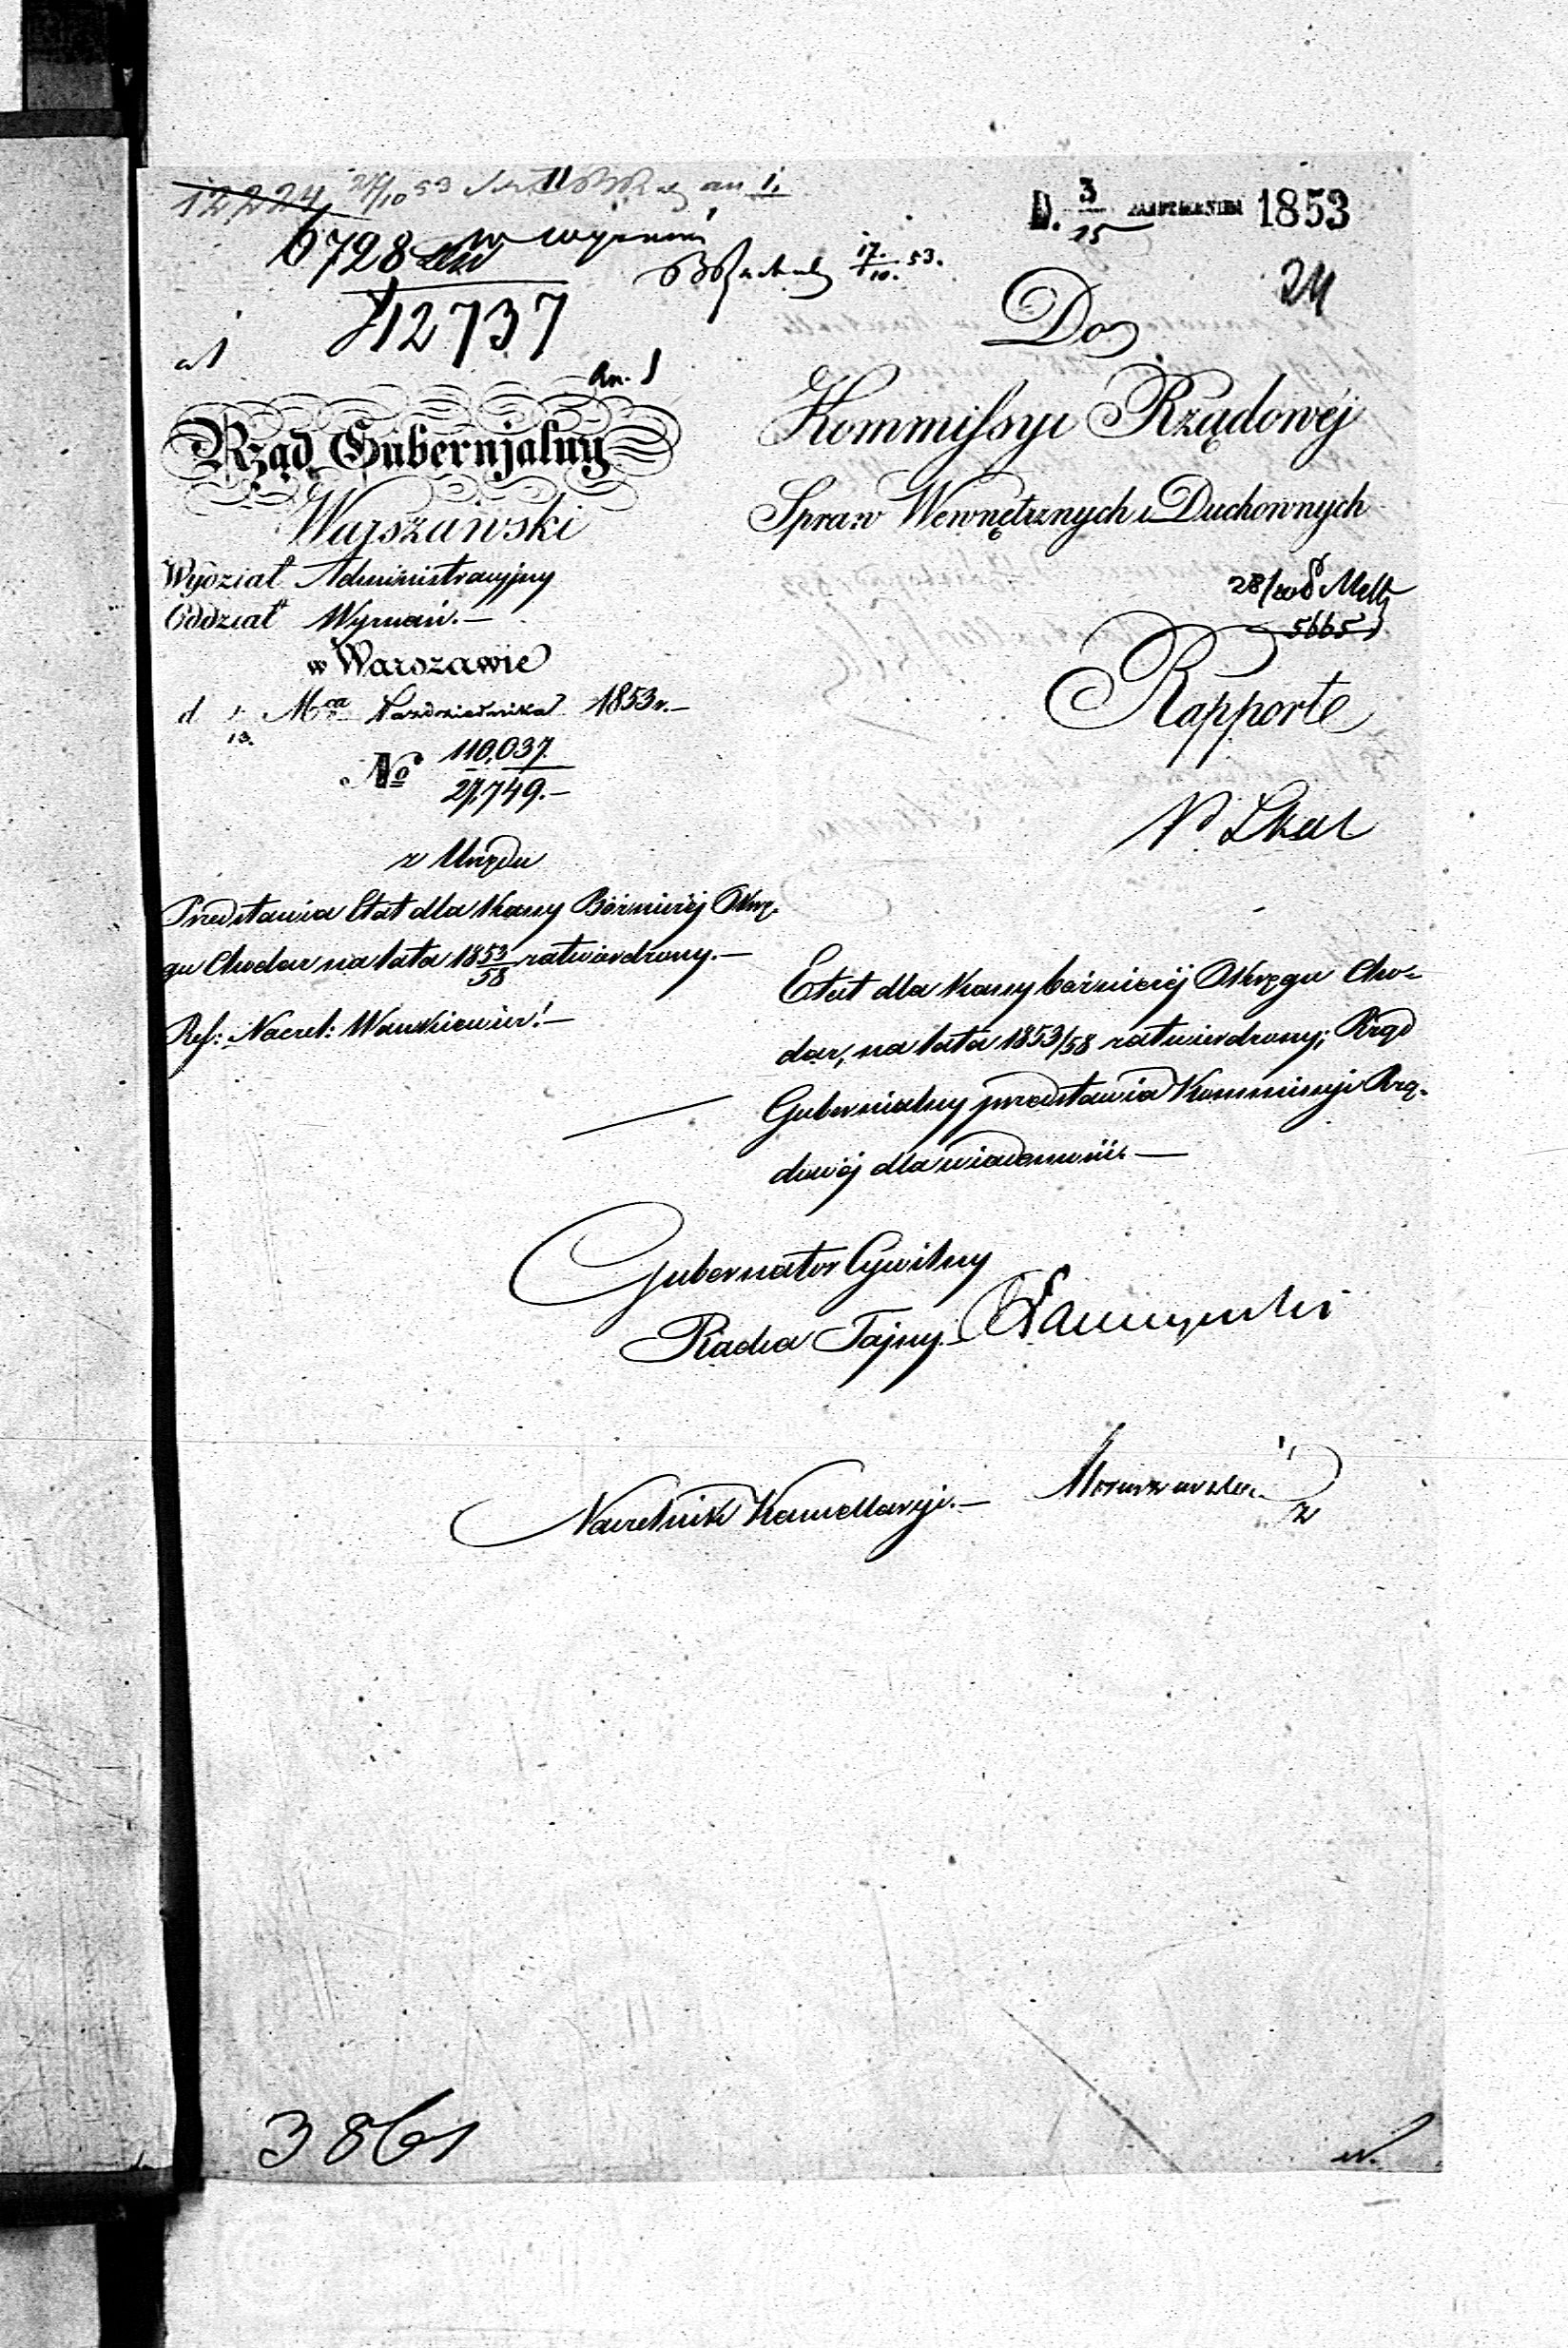 12224
6728
12737
17./10. 53.
D. 3/15 PAŹDZIERNIKA 1853
24
An. 1
Rząd Gubernjalny
Warszawski
Wydział Administracyjny
Oddział Wyznań.—
w Warszawie
d 1/13. Mca Października 1853 r.—
No 110,037./27,749.—
z Urzędu
Przedstawia Etat dla Kassy Bóżniczej Okrę-
gu Chodecz na lata 1853/58 zatwierdzony.—
Ref: Naczel:
Do
Kommissyi Rządowéj
Spraw Wewnętrznych i Duchownych
28/
5665
Rapport
Etat dla Kassy bóżniczéj Okręgu Cho-
decz, na lata 1853/58 zatwierdzony; Rząd
Gubernialny przedstawia Kommissyi Rzą-
dowéj dla wiadomości.—
Gubernator Cywilny
Radca Tajny.
Naczelnik Kancellaryi.—
3861